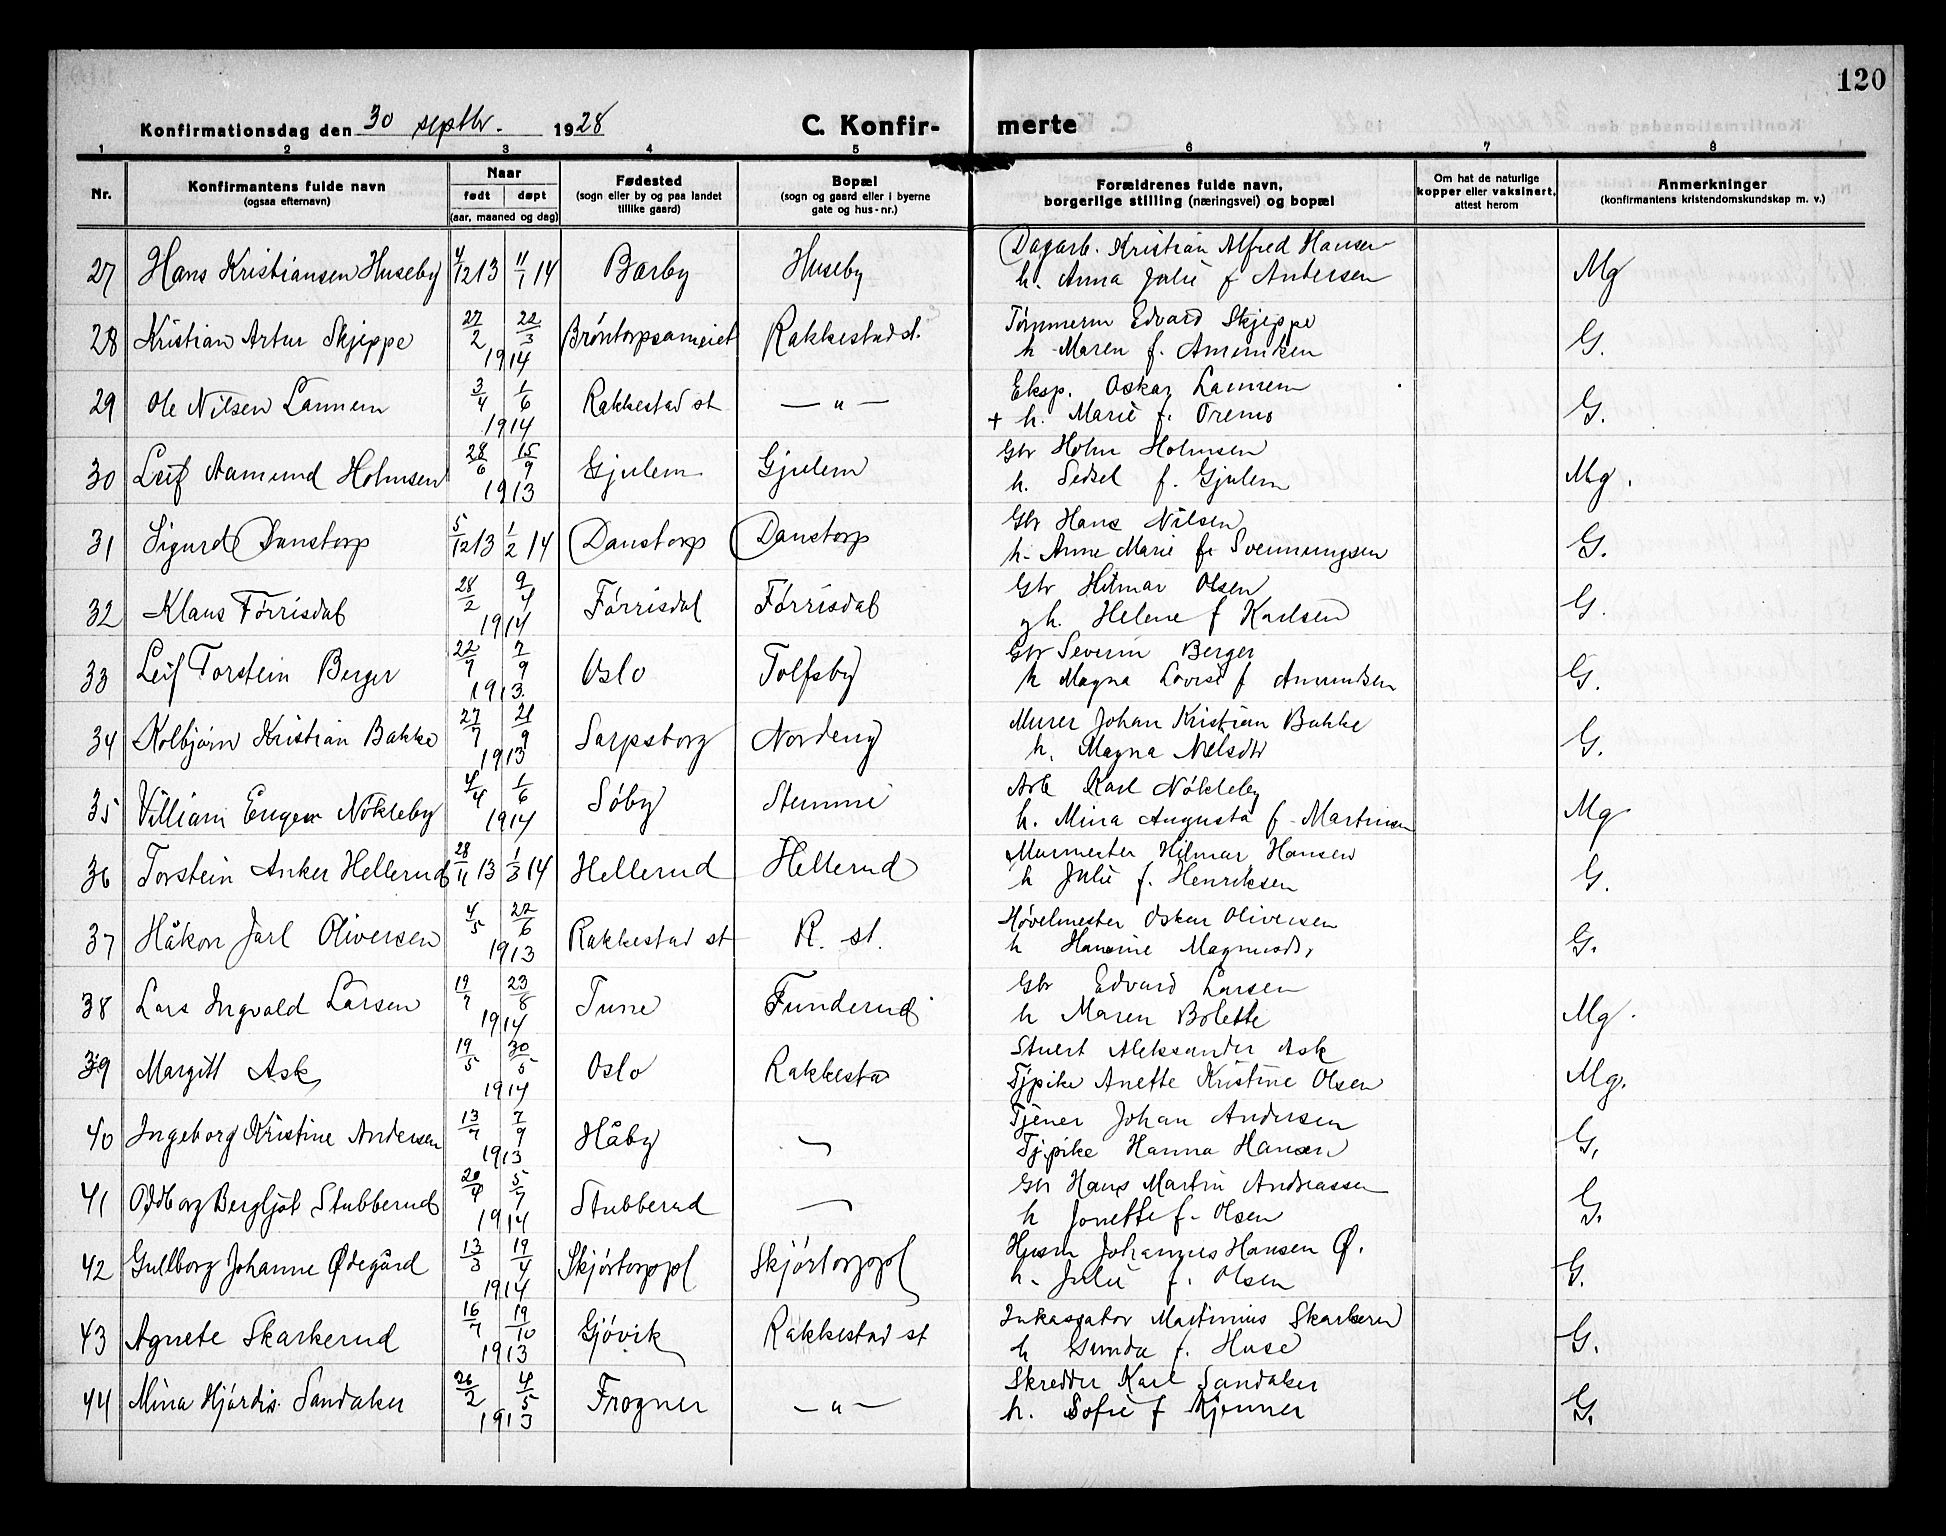 120
Konfirmationsdag den 30 septbr. 1928
C. Konfir-merte
1 2 3 4 5 6 7 8
Nr.
Konfirmantens fulde navn
(ogsaa efternavn)
Naar
født døpt
(aar, maaned og dag)
Fødested
(sogn eller by og paa landet
tillike gaard)
Bopæl
(sogn og gaard eller i byerne
gate og hus-nr.)
Forældrenes fulde navn,
borgerlige stilling (næringsvei) og bopæl
Om hat de naturlige
kopper eller vaksinert,
attest herom
Anmerkninger
(konfirmantens kristendomskundskap m. v.)
27 Hans Kristiansen Huseby 4/12 13 11/1 14 Bærby Huseby Dagarb. Kristian Alfred Hansen Mg
h. Anna Julie f Andersen
28 Kristian Artur Skjeppe 27/2 22/3 1914 Bröntorpsameiet Rakkestad st. Tømmerm Edvard Skjeppe G.
h Maren f. Amundsen
29 Ole Nilsen Lannem 3/4 1/6 1914 Rakkestad st — " — Eksp. Oskar Lannem G.
+ h. Marie f.
30 Leif Aamund Holmsen 28/6 15/9 1913 Gjulem Gjulem Gbr Holm Holmsen Mg.
h. Sedsel f. Gjulem
31 Sigurd Danstorp 5/12 13 1/2 14 Danstorp Danstorp Gbr Hans Nilsen G.
h. Anne Marie f. Svenningsen
32 Klaus Förrisdal 28/2 9/4 1914 Förrisdal Förrisdal Gbr Hilmar Olsen G.
gh. Helene f Karlsen
33 Leif Torstein Berger 22/7 7/9 1913 Oslo Tolfsby Gbr Severin Berger G.
h Magna Lovise f Amundsen
34 Kolbjörn Kristian Bakke 27/7 21/9 1913 Sarpsborg Nordeng Murer Johan Kristian Bakke G.
h. Magna Nielsdtr
35 Villiam Eugen Nökleby 4/4 1/6 1914 Söby Stumne Arb Karl Nökleby Mg
h. Mina Augusta f. Martinsen
36 Torstein Anker Hellerud 28/11 13 1/3 14 Hellerud Hellerud Murmester Hilmar Hansen G.
h Julie f. Henriksen
37 Håkon Jarl Oliversen 4/5 22/6 1913 Rakkestad st R. st. Høvelmester Oskar Oliversen G.
h Hansine Magnusdr.
38 Lars Ingvald Larsen 19/7 23/8 1914 Tune Funderud Gbr Edvard Larsen Mg.
h Maren Bolette
39 Margitt Ask 19/5 30/5 1914 Oslo Rakkesta Stuert Aleksander Ask Mg.
Tjpike Anette Kristine Olsen
40 Ingeborg Kristine Andersen 13/7 7/9 1913 Håby — Tjener Johan Andersen G.
Tj.pike Hanna Hansen
41 Oddborg Bergljot Stubberud 20/4 5/7 1914 Stubberud — Gbr Hans Martin Andreassen G.
h Jonette f. Olsen
42 Gullborg Johanne Ødegård 13/3 19/4 1914 Skjörtorppl Skjörtorppl Husm Johannes Hansen Ø. G.
h. Julie f. Olsen
43 Agnete Skarkerud 16/7 19/10 1913 Gjövik Rakkestad st Inkassator Martinius Skarkerud G.
h Gunda f. Huse
44 Mina Hjördis Sandaker 26/2 4/5 1913 Frogner — " — Skredder Karl Sandaker G.
h. Sofie f Kjenner